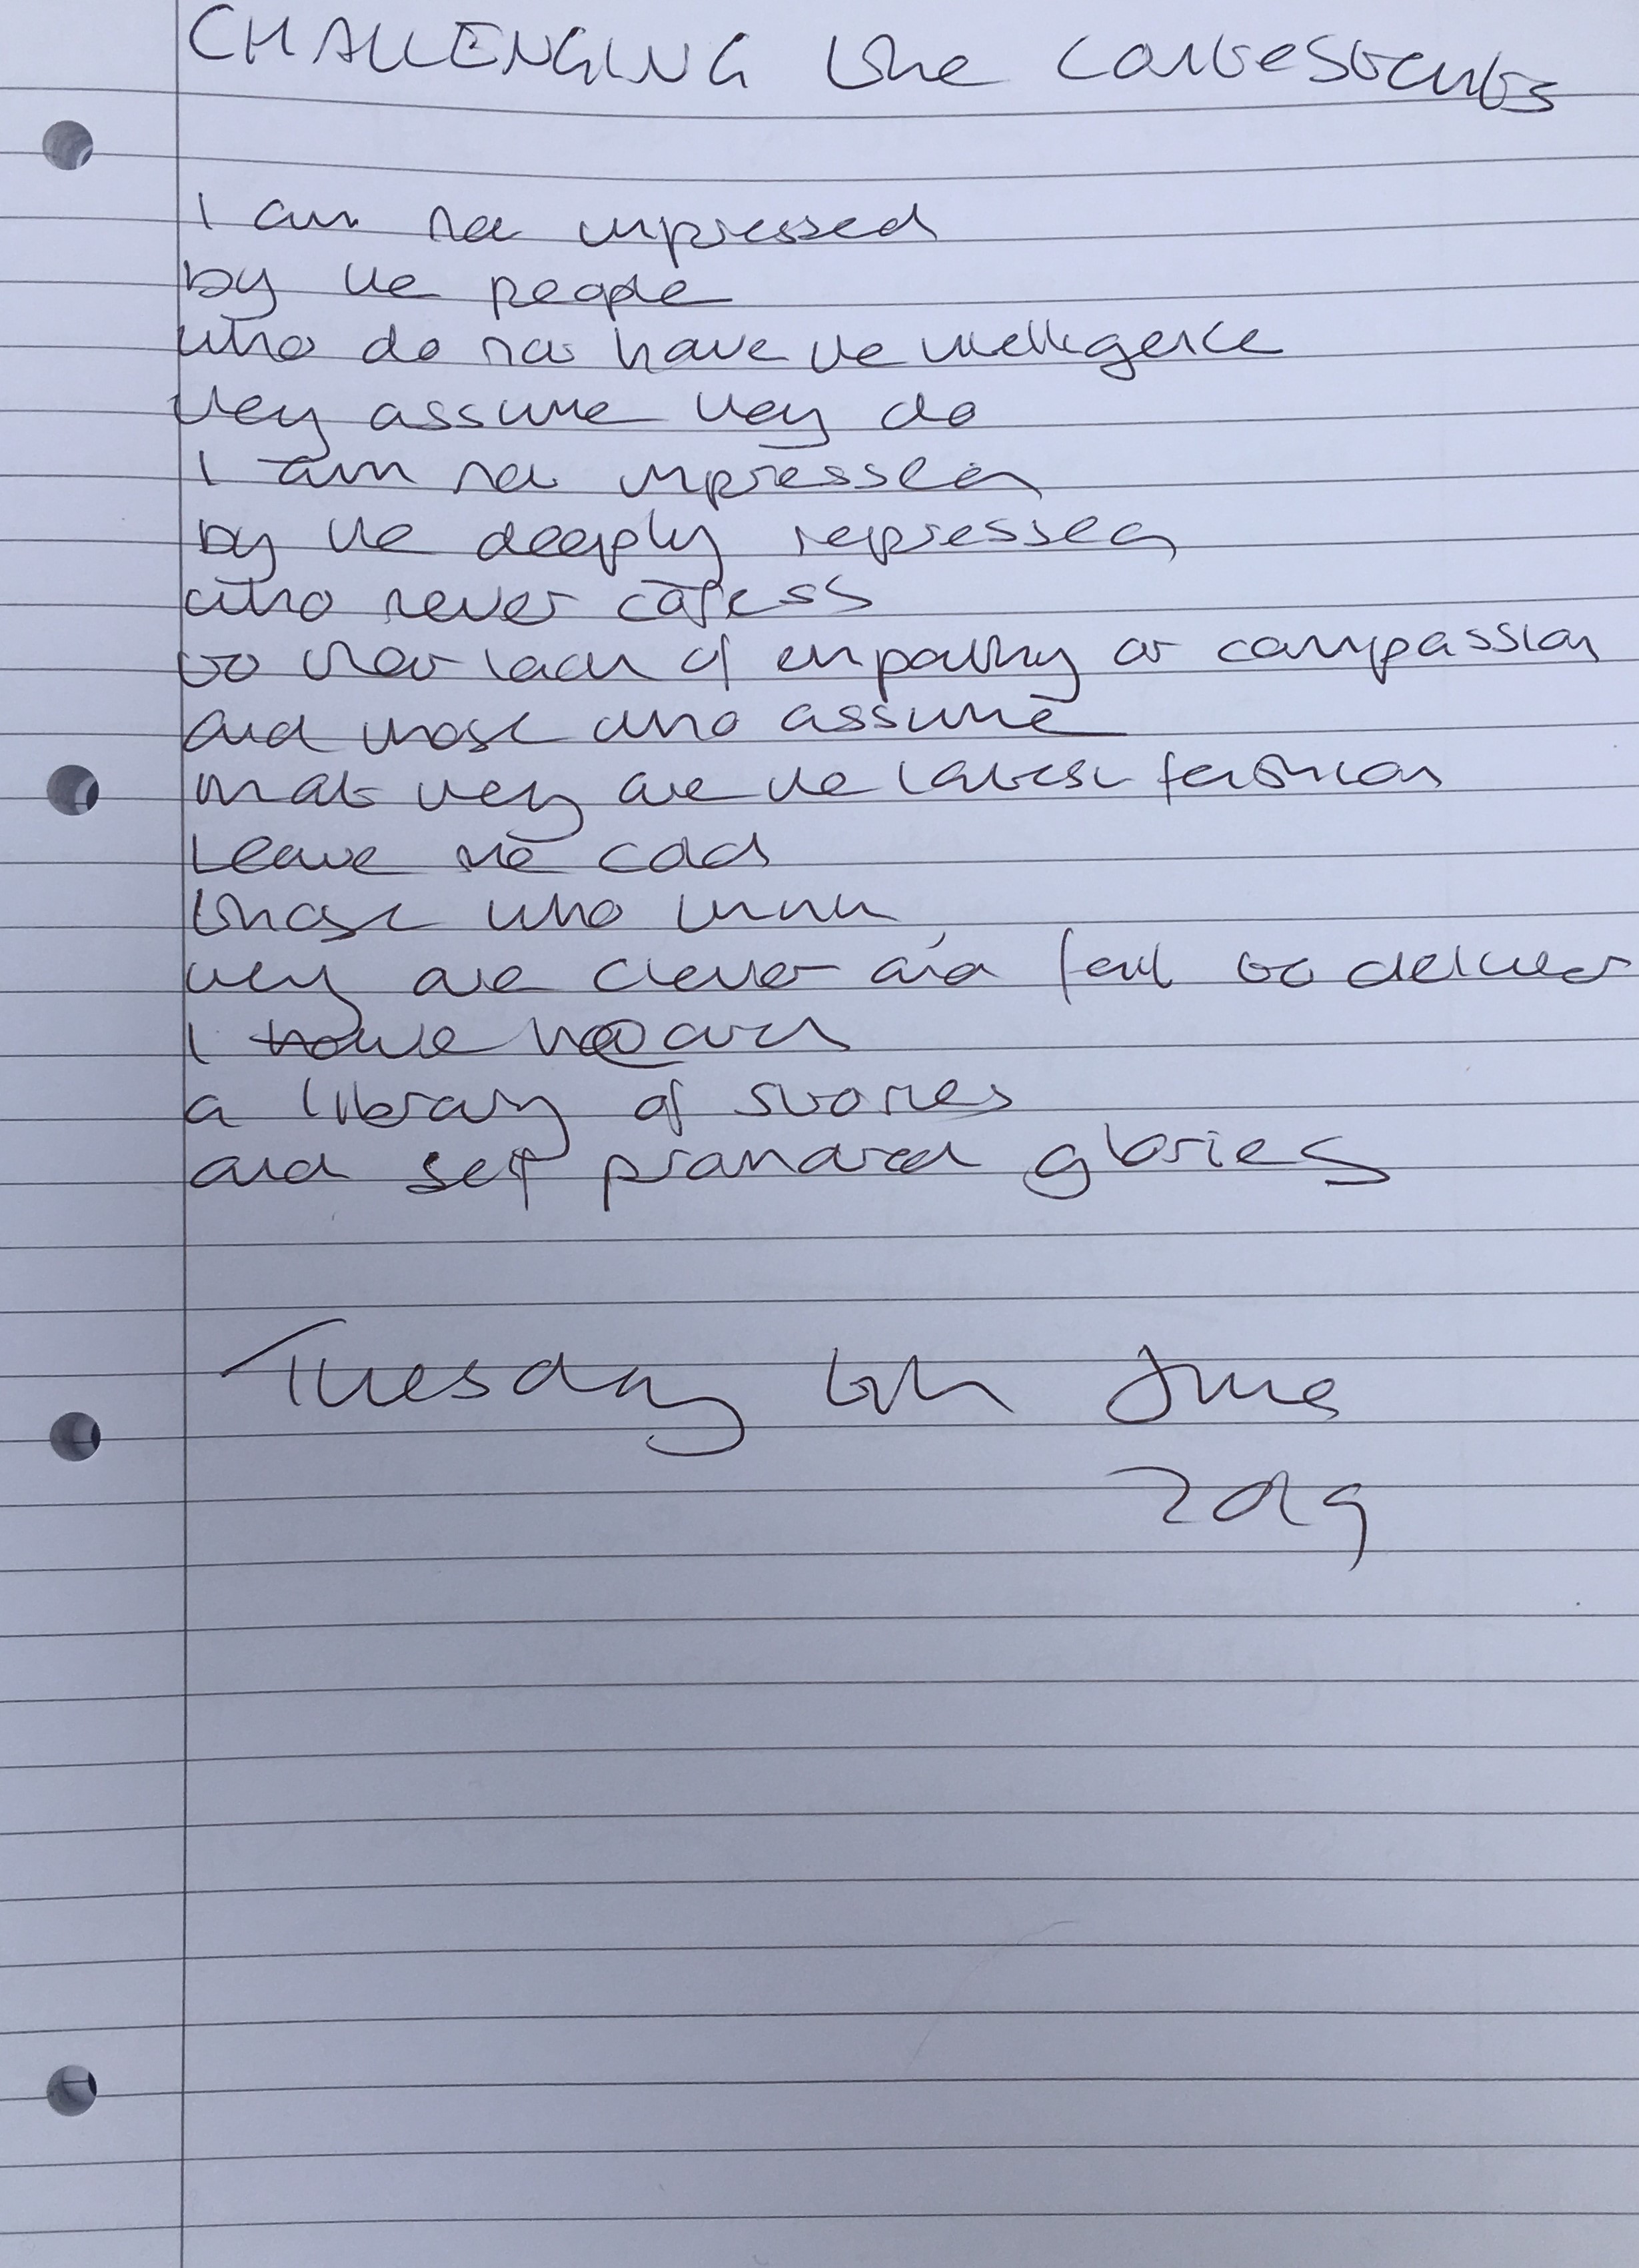 CHALLENGING the contestants
I am not impressed
by the people
who do not have the intelligence
they assume they do
I am not impressed
by the deeply repressed
who never confess
to their lack of empathy or compassion
and those who assume
that they are the latest fashion
Leave me cold
those who think
they are clever and fail to deliver
I have heard
a library of stories
and self promoted glories
Tuesday June
2019